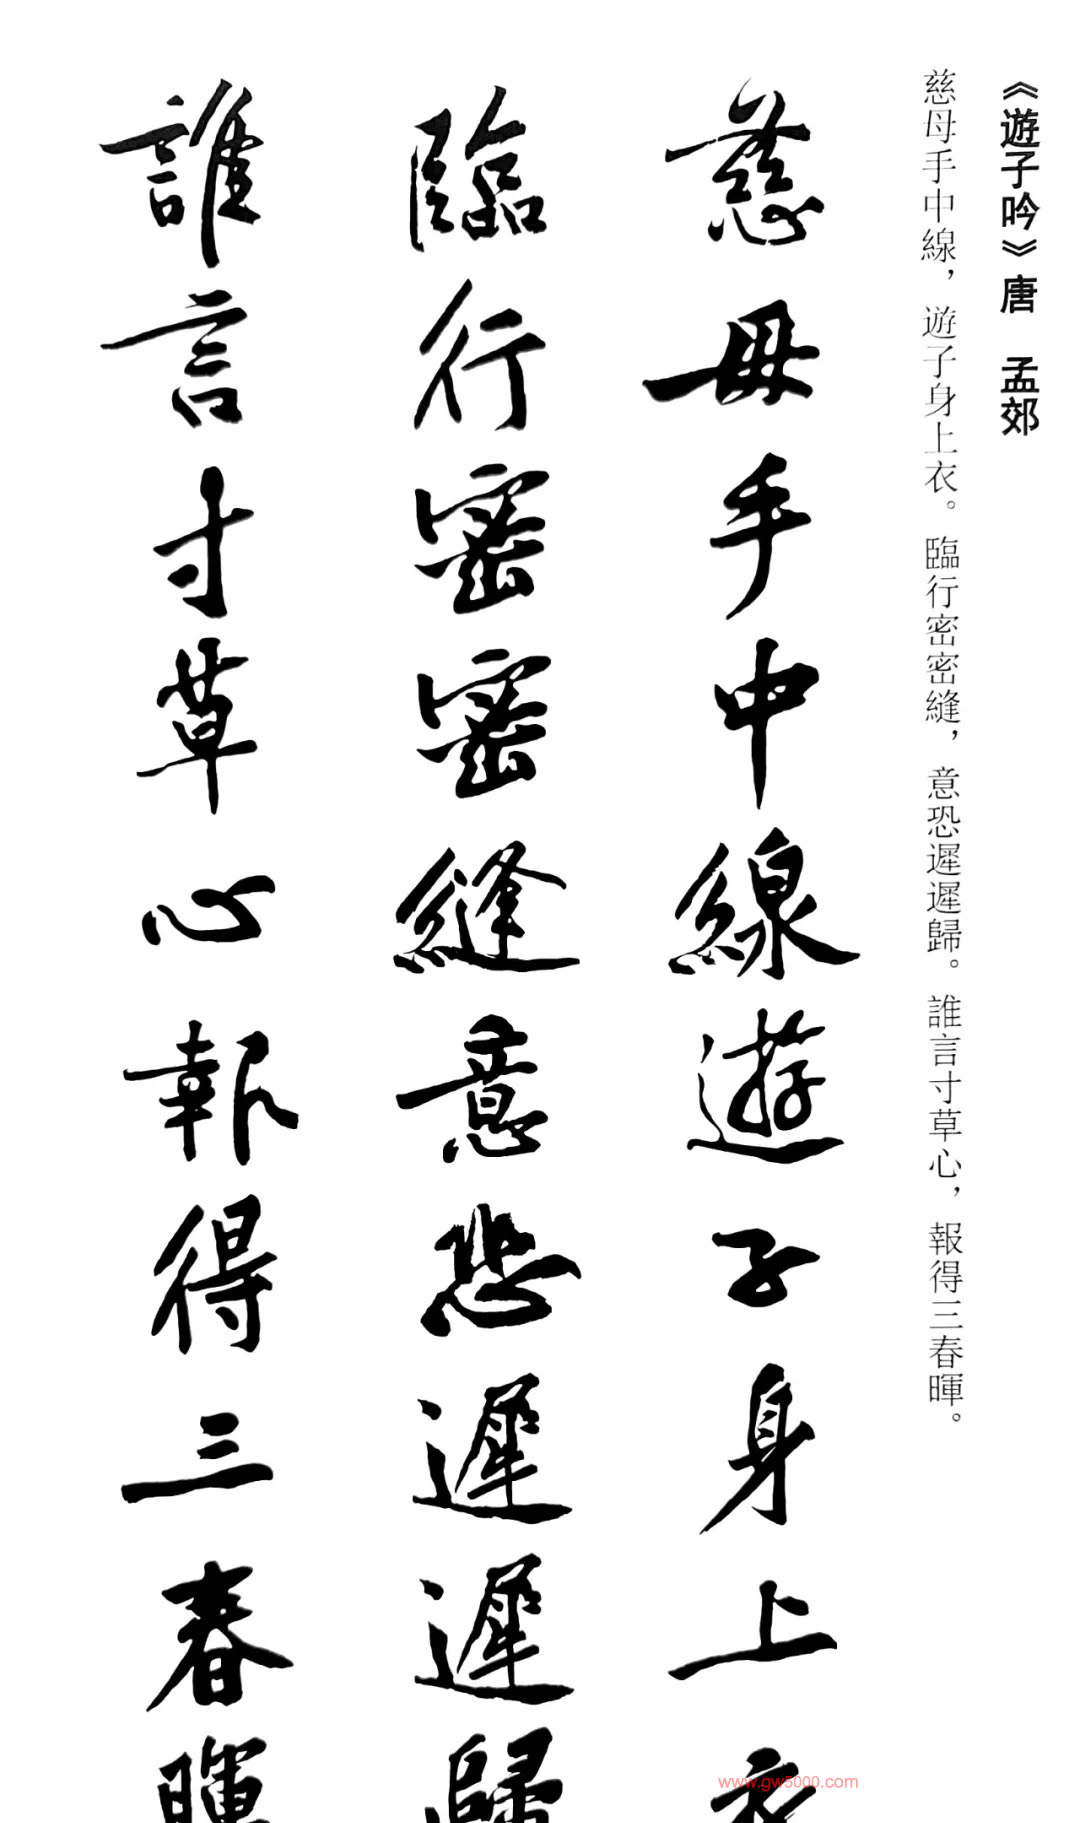 《遊子吟》唐　孟郊
慈母手中線，遊子身上衣。臨行密密縫，意恐遲遲歸。誰言寸草心，報得三春暉。
慈母手中線遊子身上衣
臨行密密縫意恐遲遲歸
誰言寸草心報得三春暉
www.gw5000.com